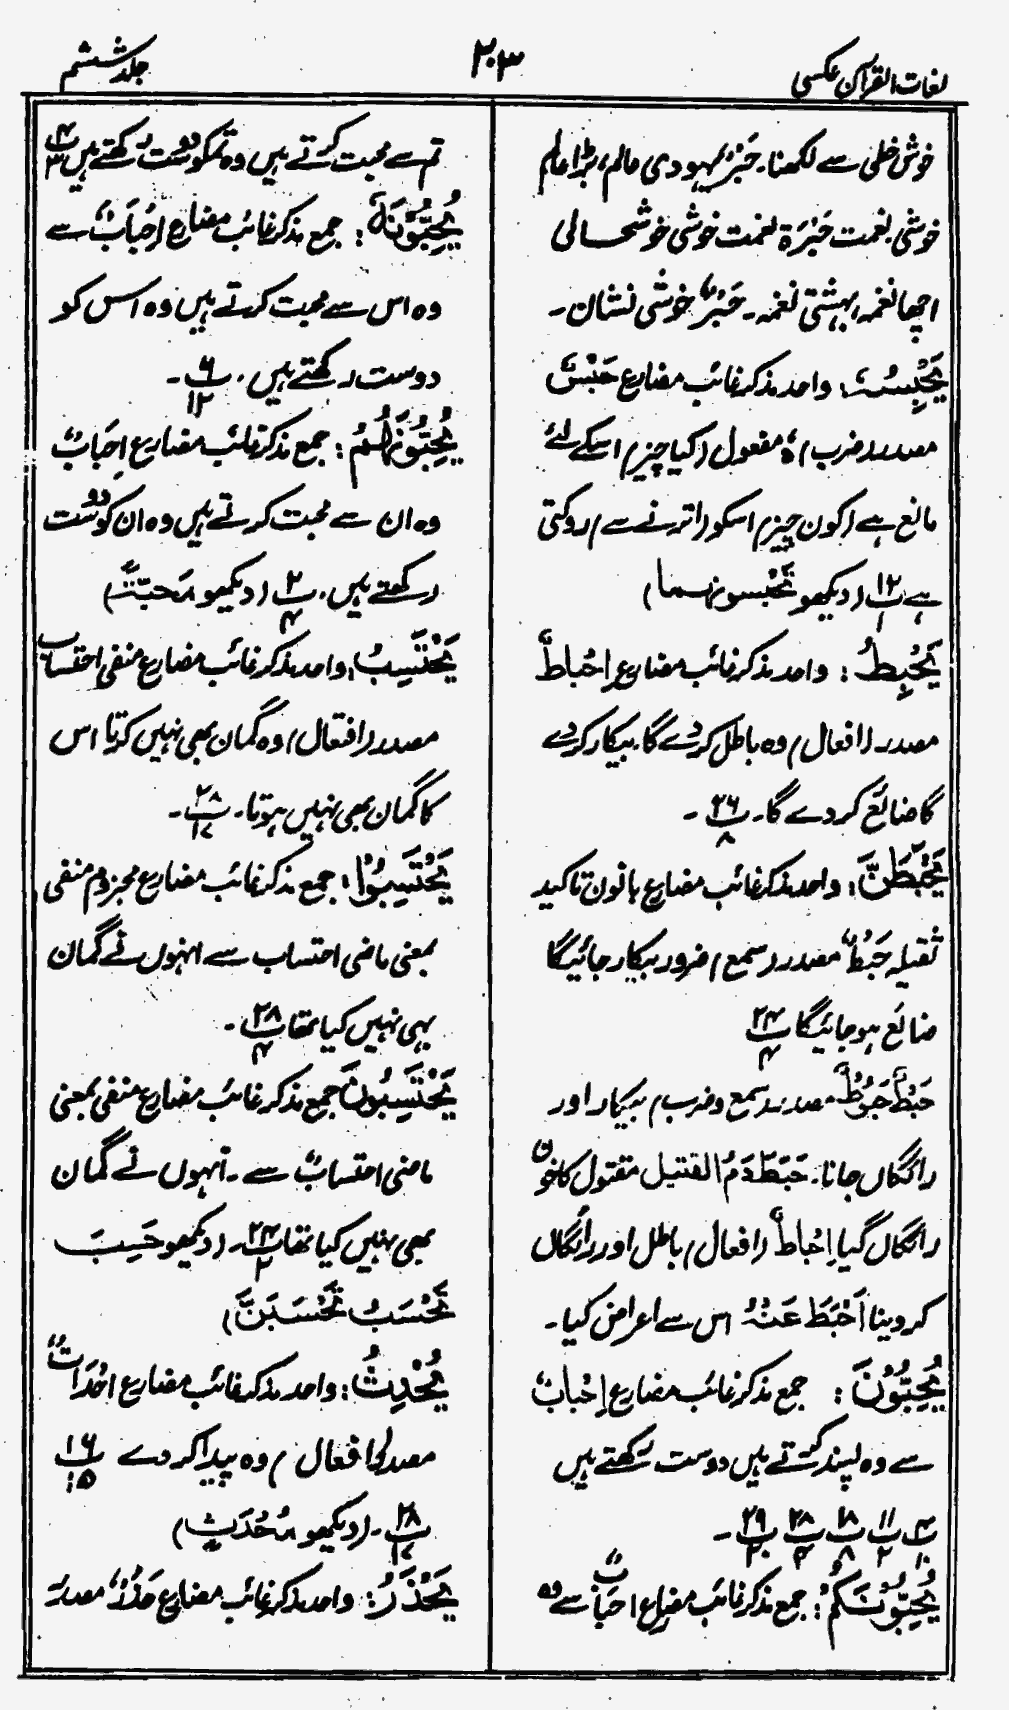 لغات القرآن عکسی
۲۰۳
جلد ششم
خوش خطی سے لکھنا۔ حَبْرٌ یہودی عالم، بڑا عالم
خوشی، نعمت حَبْرَۃ نعمت خوشی خوشحالی
اچھا نغمہ، بہشتی نغمہ۔ حَبْرٌ خوشی نشان۔
یَحْبِسُ: واحد مذکر غائب مضارع حَبْسٌ
مصدر (ضرب) ہٗ مفعول (کیا چیز) اسکے لئے
مانع ہے (کون چیز) اسکو (اترنے سے) روکتی
ہے پ۱۲/۱ (دیکھو تَحْبسونہما)
یُحْبِطُ: واحد مذکر غائب مضارع اِحْباطٌ
مصدر (افعال) وہ باطل کردے گا، بیکار کردے
گا ضائع کردے گا۔ پ۲۶/۸۔
یَحْبَطَنَّ: واحد مذکر غائب مضارع بانون تاکید
ثقیلہ حَبْطٌ مصدر (سمع) ضرور بیکار جائیگا
ضائع ہوجائیگا پ۲۴/۴
حَبْطٌ حُبُوْطٌ مصدر (سمع وضرب) بیکار اور
رائگاں جانا۔ حَبَطَ دَمُ القتیل مقتول کا خون
رائگاں گیا اِحْباطٌ (افعال) باطل اور رائگاں
کردینا اَحْبَطَ عَنْہُ اس سے اعراض کیا۔
یُحِبُّوْنَ: جمع مذکر غائب مضارع اِحْبابٌ
سے وہ پسند کرتے ہیں دوست رکھتے ہیں
پ۴/۱۰ پ۱۱/۲ پ۱۸/۸ پ۲۸/۴ پ۲۹/۲۰۔
یُحِبُّوْنَکُمْ: جمع مذکر غائب مضارع احبابٌ سے وہ
تم سے محبت کرتے ہیں وہ تمکو دوست رکھتے ہیں پ۴/۳
یُحِبُّوْنَہٗ: جمع مذکر غائب مضارع اِحْبَابٌ سے
وہ اس سے محبت کرتے ہیں وہ اس کو
دوست رکھتے ہیں۔ پ۶/۱۲۔
یُحِبُّوْنَہُمْ: جمع مذکر غائب مضارع اِحْبَابٌ
وہ ان سے محبت کرتے ہیں وہ ان کو دوست
رکھتے ہیں۔ پ۲/۴ (دیکھو مَحَبّۃ)
یَحْتَسِبُ: واحد مذکر غائب مضارع منفی احتساب
مصدر (افتعال) وہ گمان بھی نہیں کرتا اس
کا گمان بھی نہیں ہوتا۔ پ۲۸/۱۷۔
یَحْتَسِبُوْا: جمع مذکر غائب مضارع مجزوم منفی
بمعنی ماضی احتساب سے انہوں نے گمان
بھی نہیں کیا تھا پ۲۸/۴۔
یَحْتَسِبُوْنَ جمع مذکر غائب مضارع منفی بمعنی
ماضی احتسابٌ سے۔ انہوں نے گمان
بھی نہیں کیا تھا پ۲۴/۲۔ (دیکھو حَسِبَ
تَحْسَبُ تَحْسَبَنَّ)
یُحْدِثُ: واحد مذکر غائب مضارع اِحْدَاثٌ
مصدر (افعال) وہ پیدا کردے پ۱۶/۱۵
پ۲۸/۱۷۔ (دیکھو مُحْدَثٍ)
یَحْذَرُ: واحد مذکر غائب مضارع حَذَرٌ مصدر